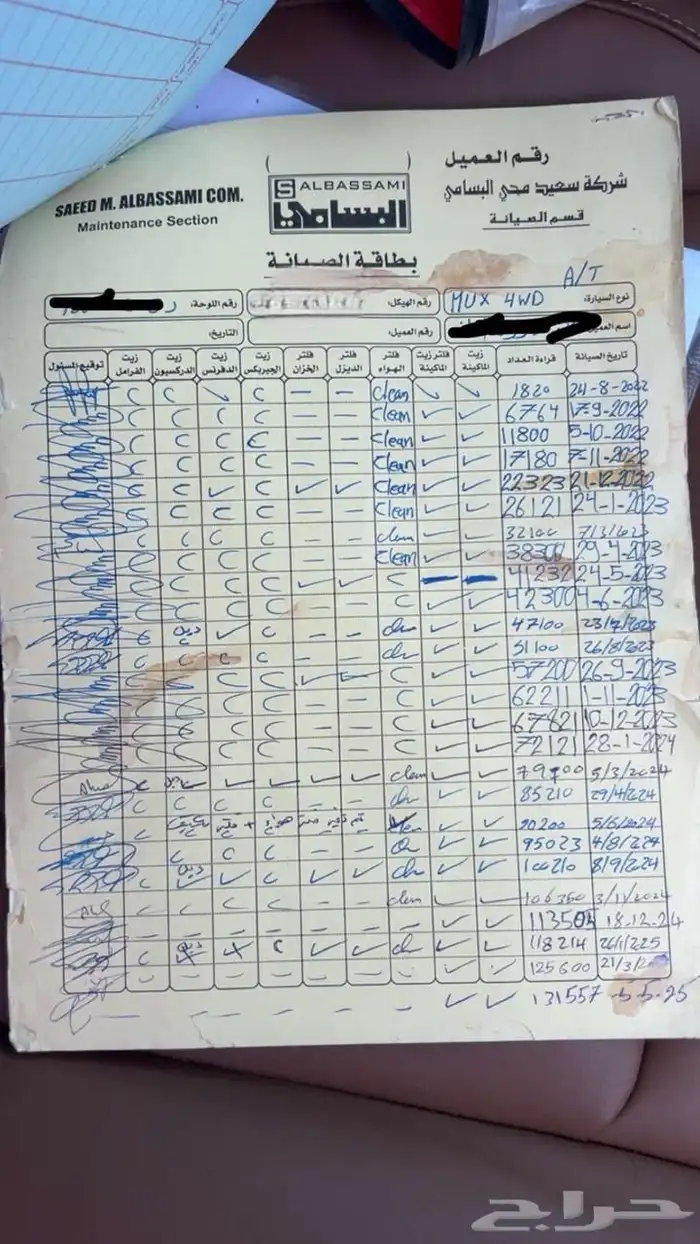 رقم العميل
( )
SAEED M. ALBASSAMI COM.
Maintenance Section
S ALBASSAMI
البسامي
شركة سعيد محي البسامي
قسم الصيانة
بطاقة الصيانة
A/T
نوع السيارة: MUX 4WD رقم الهيكل: رقم اللوحة:
اسم العميل رقم العميل: التاريخ:
تاريخ الصيانة قراءة العداد زيت الماكينة فلتر زيت الماكينة فلتر الهواء فلتر الديزل فلتر الخزان زيت الجيربكس زيت الدفرنس زيت الدركسون زيت الفرامل توقيع المسئول
24-8-2022 1820 ✓ ✓ Clean — — C ✓ C C
17-9-2022 6764 ✓ ✓ Clean — — C C C C
5-10-2022 11800 ✓ ✓ Clean — — C C C C
7-11-2022 17180 ✓ ✓ Clean — — C C C C
21-12-2022 22323 ✓ ✓ Clean ✓ ✓ C ✓ C C
24-1-2023 26121 ✓ ✓ Clean — — C C C C
7/3/2023 32100 ✓ ✓ clean — — C C C C
29-4-2023 38300 ✓ ✓ Clean — — C C C C
24-5-2023 41232 — — C ✓ ✓ C C C C
4-6-2023 42300 ✓ ✓ C — — C C C C
23/7/2023 47100 ✓ ✓ — — C ✓ C
26/8/2023 51100 ✓ ✓ — — C C C C
26-9-2023 57200 ✓ ✓ C ✓ C C C C
1-11-2023 62211 ✓ ✓ C — — C C C C
10-12-2023 67821 ✓ ✓ C — — C C C C
28-1-2024 72121 ✓ ✓ C — — C C C C
5/3/2024 ✓ ✓ clean ✓ ✓ ✓ ✓ C
29/4/2024 85210 ✓ ✓ — — C C C C
5/6/2024 90200 ✓ ✓
4/8/224 95023 ✓ ✓ — — C C C
8/9/224 100210 ✓ ✓ ✓ ✓ C ✓ C
3/11/2024 106350 ✓ ✓ clean — — C C C C
18.12-24 113505 ✓ ✓ — — — — — — —
26/1/225 118214 ✓ ✓ ✓ ✓ C C
21/3/ 125600 ✓ ✓ — — — — — — —
5-5-25 131557 ✓ ✓ — — — — — — —
حراج